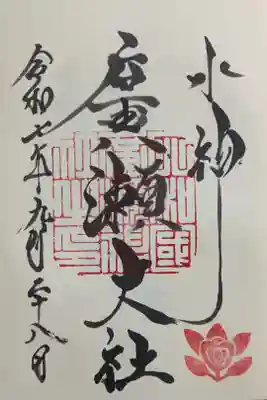 水神
廣瀬大社
令和七年九月二十八日